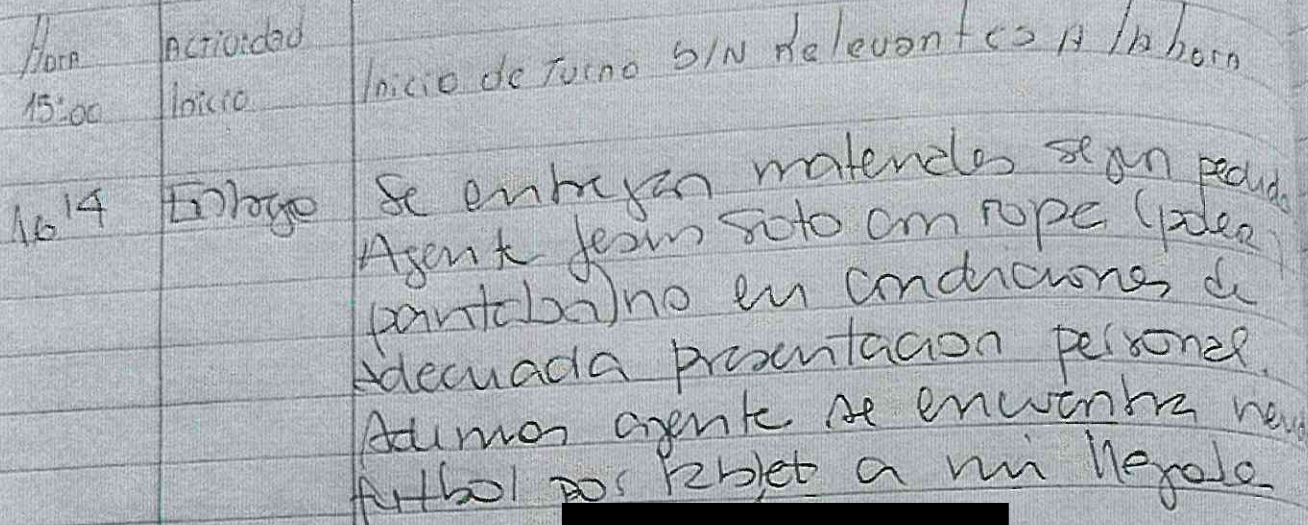 Hora Actividad
15:00 Inicio Inicio de Turno S/N Relevantes A la hora
16 14 Entrega Se entregan materiales segun pedido
Agente Jeam Soto con ropa (polera
pantalon) no en condiciones de
Adecuada presentacion personal.
Ademas agente se encuentra
futbol por tablet a mi llegada